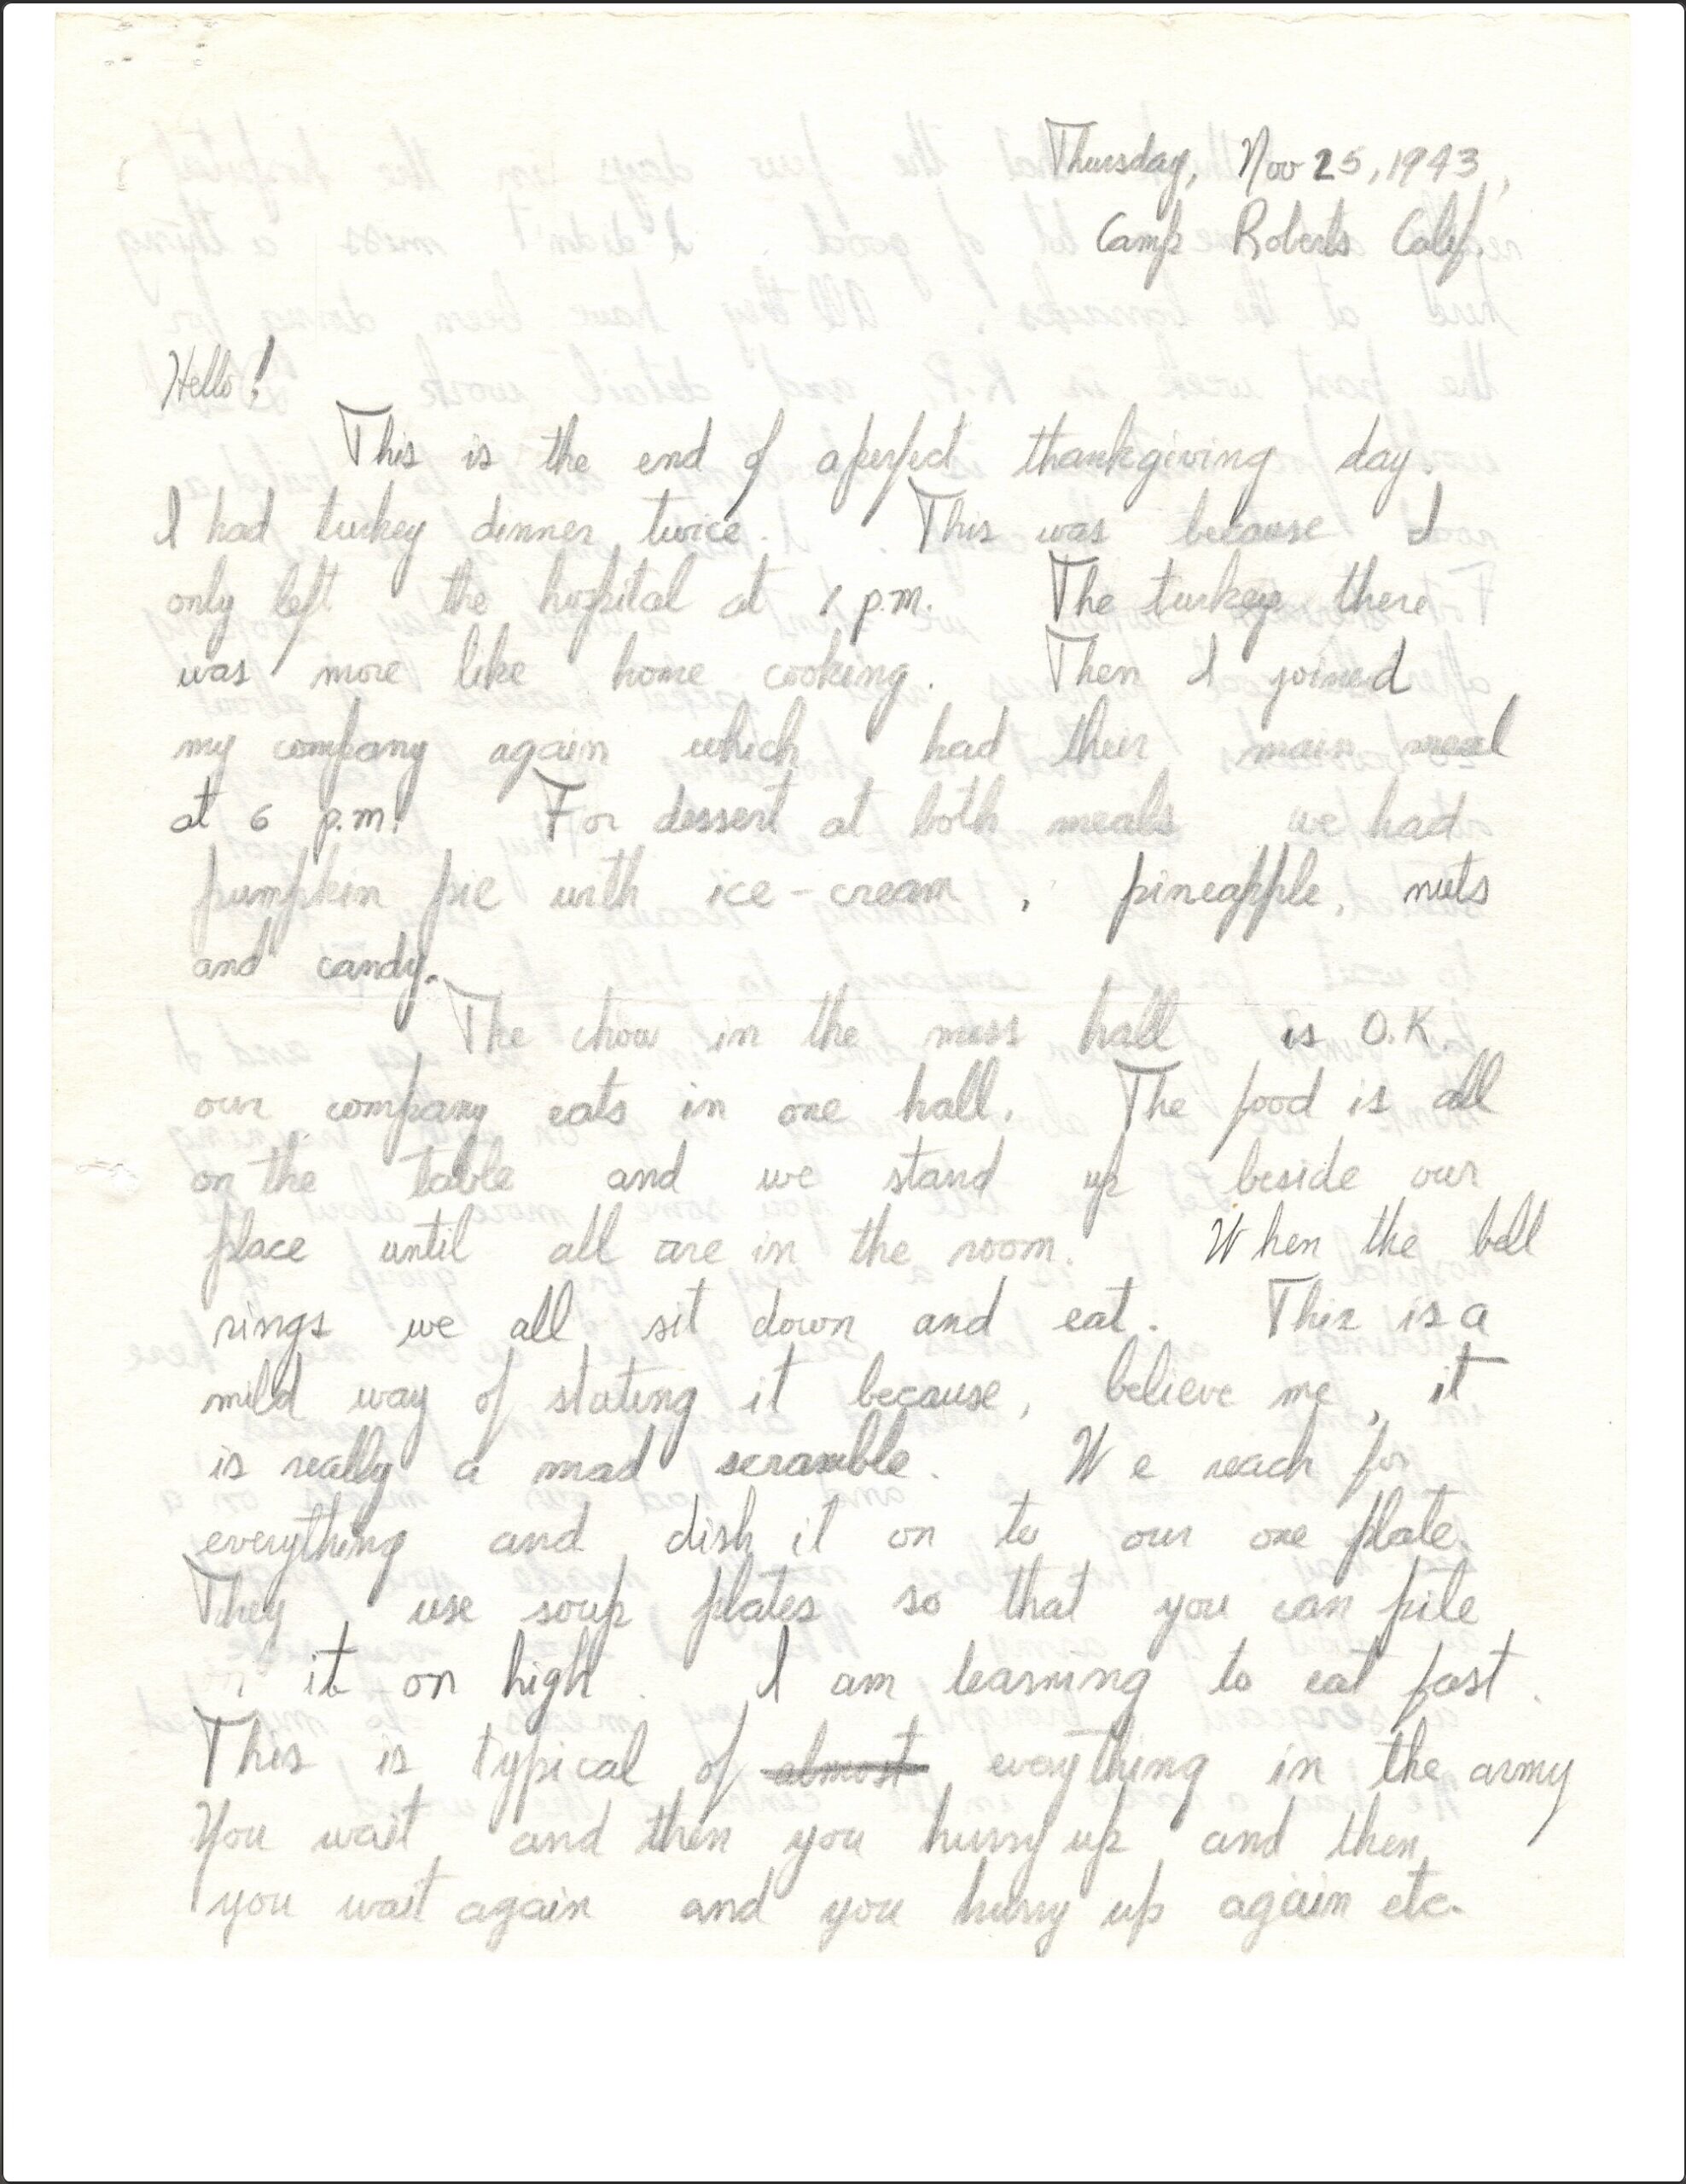 Thursday, Nov 25, 1943,
Camp Roberts Calif.
Hello!
This is the end of a perfect thankgiving day.
I had turkey dinner twice. This was because I
only left the hospital at 1 p.m. The turkey there
was more like home cooking. Then I joined
my company again which had their main meal
at 6 p.m. For dessert at both meals we had
pumpkin pie with ice-cream, pineapple, nuts
and candy.
The chow in the mess hall is O.K.
our company eats in one hall. The food is all
on the table and we stand up beside our
place until all are in the room. When the bell
rings we all sit down and eat. This is a
mild way of stating it because, believe me, it
is really a mad scramble. We reach for
everything and dish it on to our one plate.
They use soup plates so that you can pile
it on high. I am learning to eat fast.
This is typical of almost everything in the army
You wait and then you hurry up and then
you wait again and you hurry up again etc.